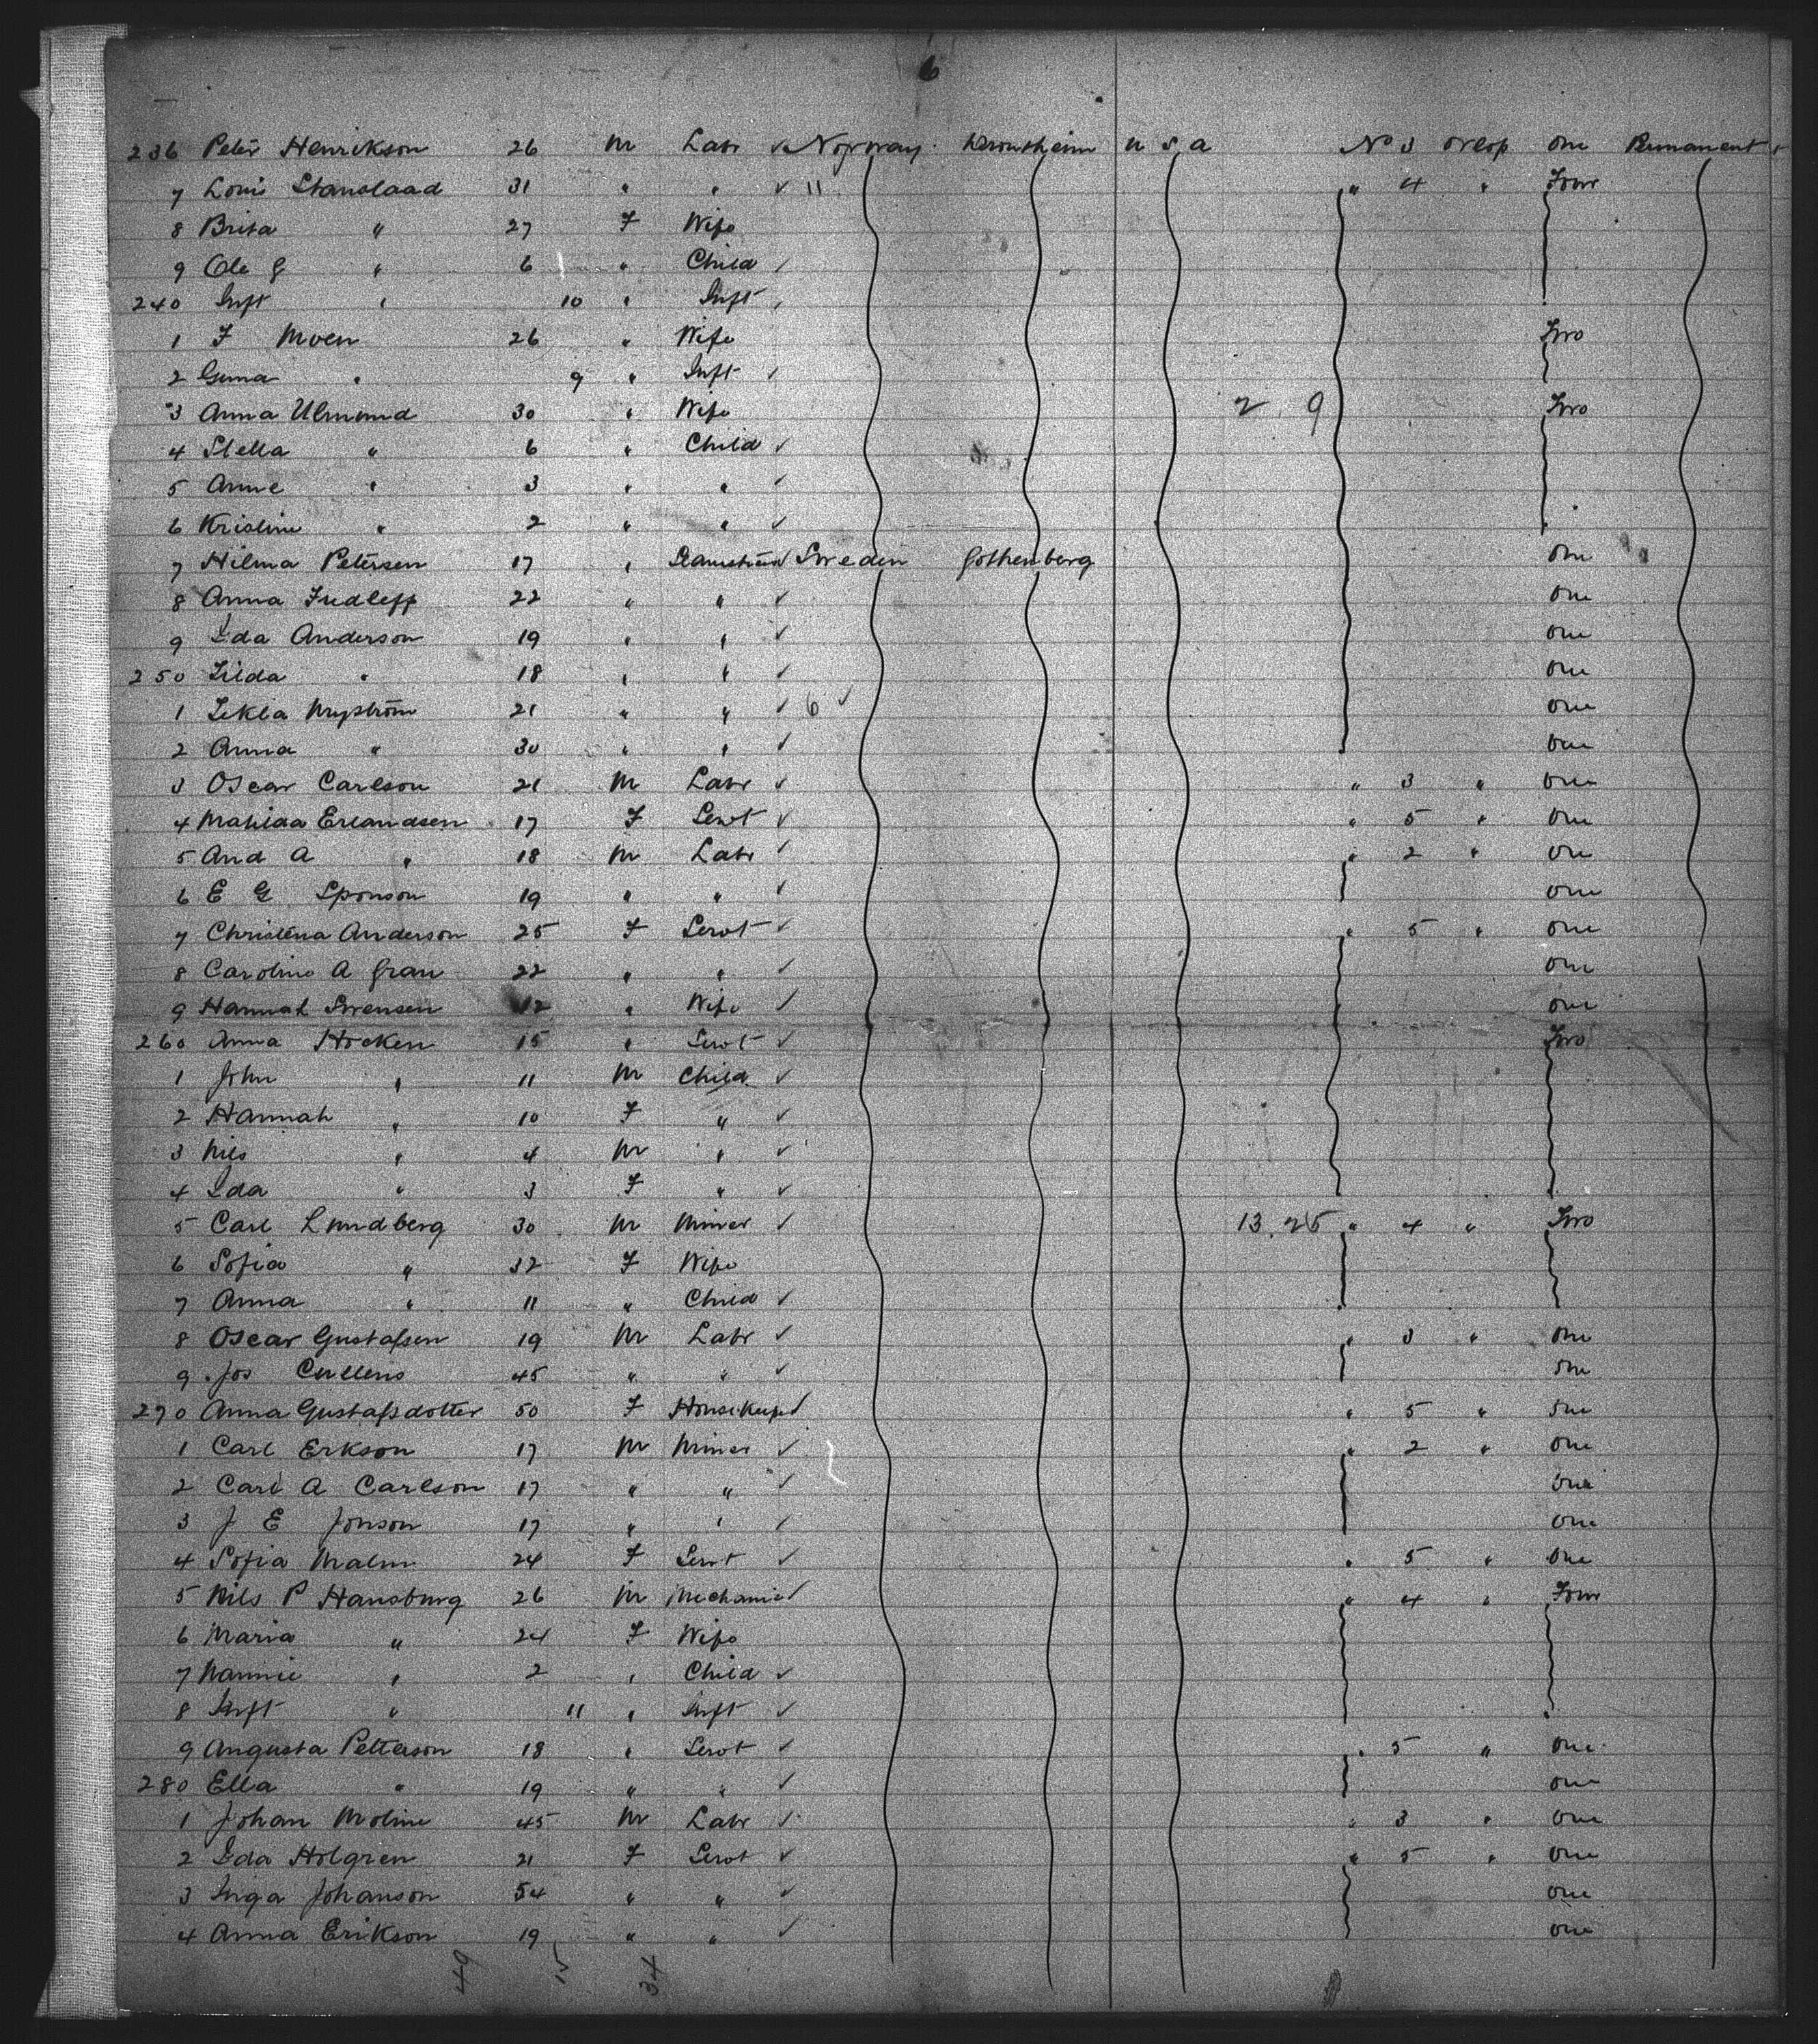 6
236 Peter Henrikson 26 M Labr ✓ Norway Drontheim U S A No 3 Orlop One Permanent
7 Loui 31 " " ✓ 11 " 4 " Four
8 Brita " 27 F Wife
9 Ole G " 6 " Child ✓
240 Inft " 10 " Inft ✓
1 F Moen 26 " Wife Two
2 Guna " 9 " Inft ✓
3 Anna Ulmund 30 " Wife 2 9 Two
4 Stella " 6 " Child ✓
5 Anne " 3 " " ✓
6 Kristine " 2 " " ✓
7 Hilma Petersen 17 " Sweden Gothenberg One
8 Anna 22 " " ✓ One
9 Ida Anderson 19 " " ✓ One
250 Tilda " 18 " " ✓ One
1 Tekla Nyström 21 " " ✓ 6 ✓ One
2 Anna " 30 " " ✓ One
3 Oscar Carlson 21 M Labr ✓ " 3 " One
4 Matilda Erlandsen 17 F Servt ✓ " 5 " One
5 And A " 18 M Labr ✓ " 2 " One
6 E G Sponson 19 " " ✓ One
7 Christena Anderson 25 F Servt ✓ " 5 " One
8 Caroline A Gran 22 " " ✓ One
9 Hannah Swensen " Wife ✓ One
260 Anna Hocken 15 " Servt ✓ Two
1 John " 11 M Child ✓
2 Hannah " 10 F " ✓
3 Nils " 4 M " ✓
4 Ida " 3 F " ✓
5 Carl Lundberg 30 M Miner ✓ 13.25 " 4 " Two
6 Sofia " 32 F Wife
7 Anna " 11 " Child ✓
8 Oscar Gustafsen 19 M Labr ✓ " 3 " One
9 Jos Cullens 45 " " ✓ One
270 Anna Gustafsdotter 50 F Housekeep ✓ " 5 " One
1 Carl Erkson 17 M Miner ✓ " 2 " One
2 Carl A Carlson 17 " " ✓ One
3 J E Jonson 17 " " ✓ One
4 Sofia Malm 24 F Servt ✓ " 5 " One
5 Nils P Hansburg 26 M Mechanic ✓ " 4 " Four
6 Maria " 24 F Wife
7 Nannie " 2 " Child ✓
8 Inft " 11 " Inft ✓
9 Augusta Petterson 18 " Servt ✓ " 5 " One
280 Ella " 19 " " ✓ One
1 Johan Moline 45 M Labr ✓ " 3 " One
2 Ida Holgren 21 F Servt ✓ " 5 " One
3 Inga Johanson 54 " " ✓ One
4 Anna Erikson 19 " " ✓ One
49 15 34